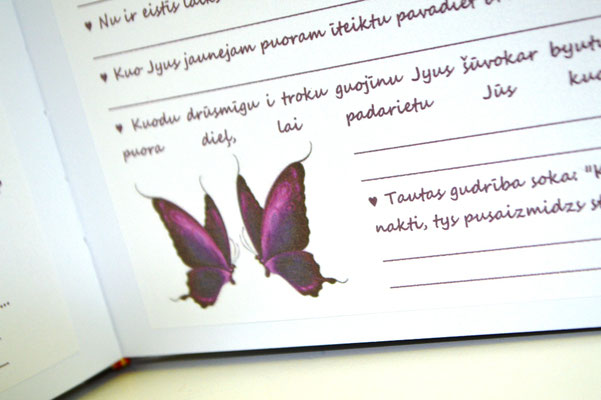 ♥ Nu ir eistīs laiks
♥ Kuo Jyus jaunejam puoram īteiktu pavadiet
♥ Kuodu drūsmīgu i troku guojīnu Jyus šūvokar
puora dieļ, lai padarietu Jūs
♥ Tautas gudrība soka:
nakti, tys pusaizmidzs